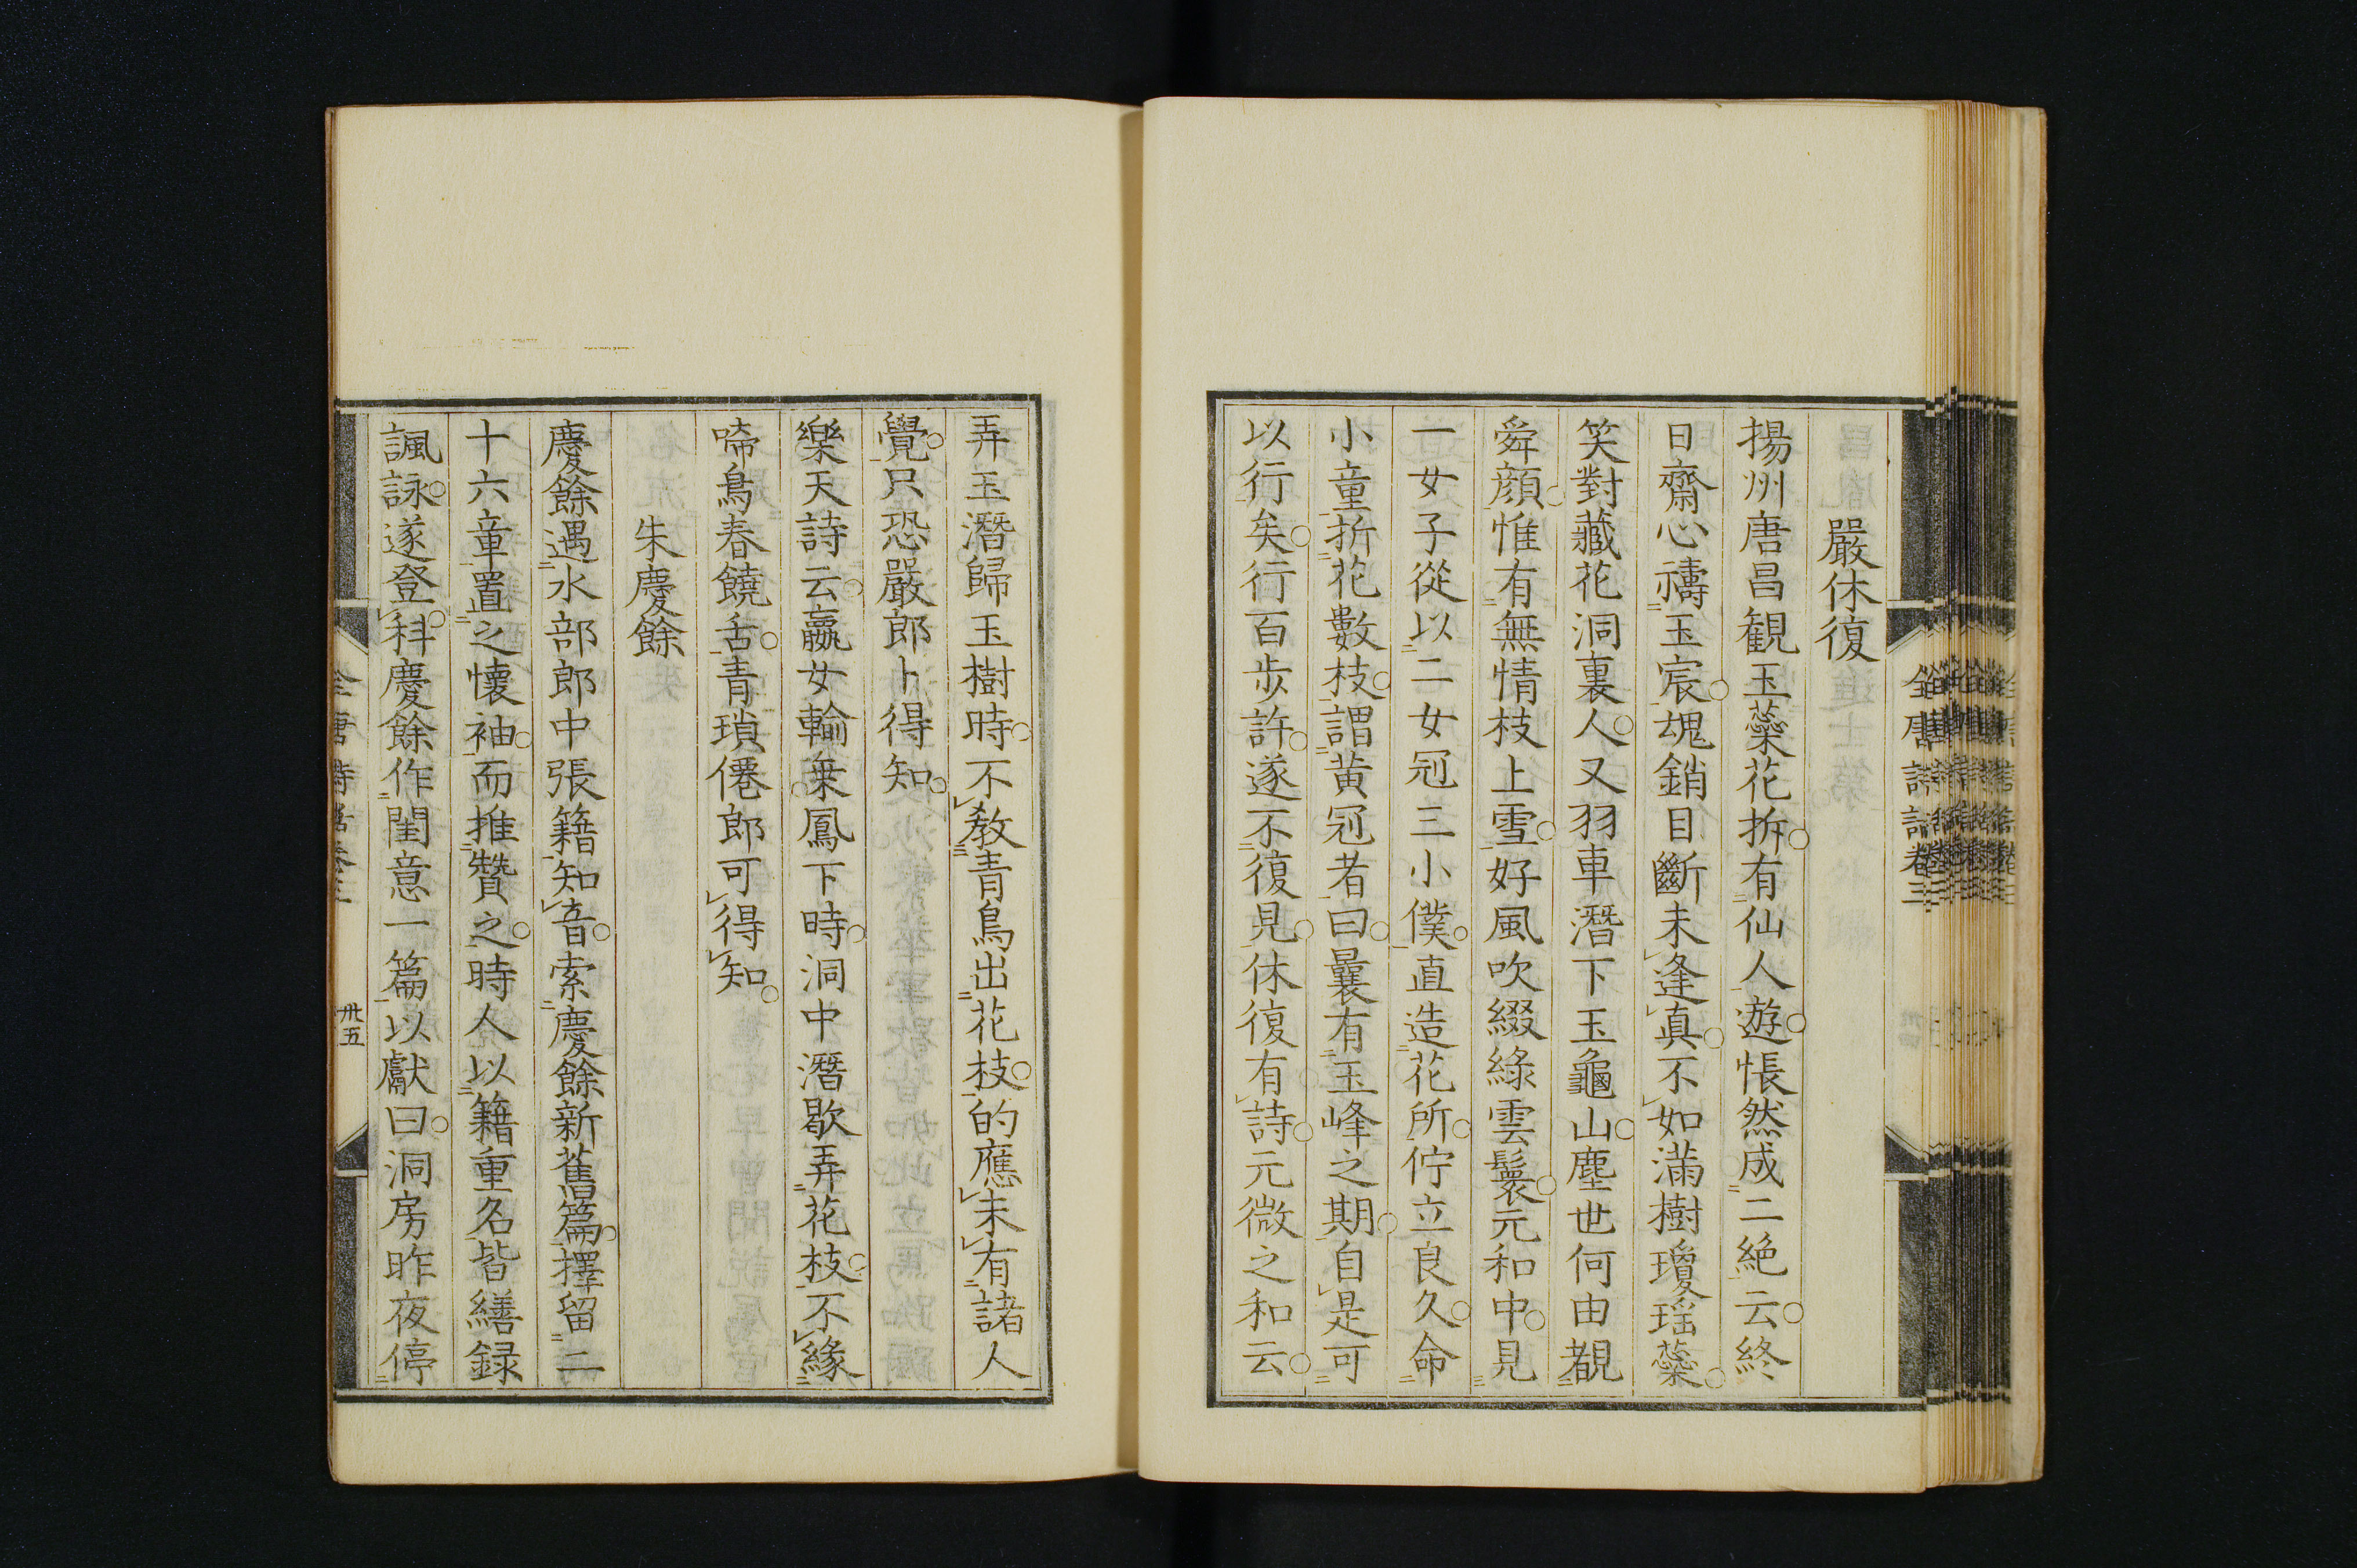 嚴休復
揚州唐昌観玉蘂花拆有仙人遊悵然成二絶云終
日齋心禱玉宸魂銷目斷未逢真不如滿樹瓊瑶蘂
笑對藏花洞裏人又羽車潛下玉龜山塵世何由覩
舜顔惟有無情枝上雪好風吹綴綠雲鬟元和中見
一女子從以二女冠三小僕直造花所佇立良久命
小童折花數枝謂黄冠者曰曩有玉峰之期自是可
以行矣行百步許遂不復見休復有詩元微之和云
弄玉潛歸玉樹時不教青鳥出花枝的應未有諸人
覺只恐嚴郎卜得知
樂天詩云嬴女輸乗鳳下時洞中潛歇弄花枝不緣
啼鳥春饒舌青瑣僊郎可得知
朱慶餘
慶餘遇水部郎中張籍知音索慶餘新舊篇擇留二
十六章置之懷袖而推贊之時人以籍重名皆繕録
諷詠遂登科慶餘作閨意一篇以獻曰洞房昨夜停
全唐詩話卷三
卅五
全唐詩話卷三